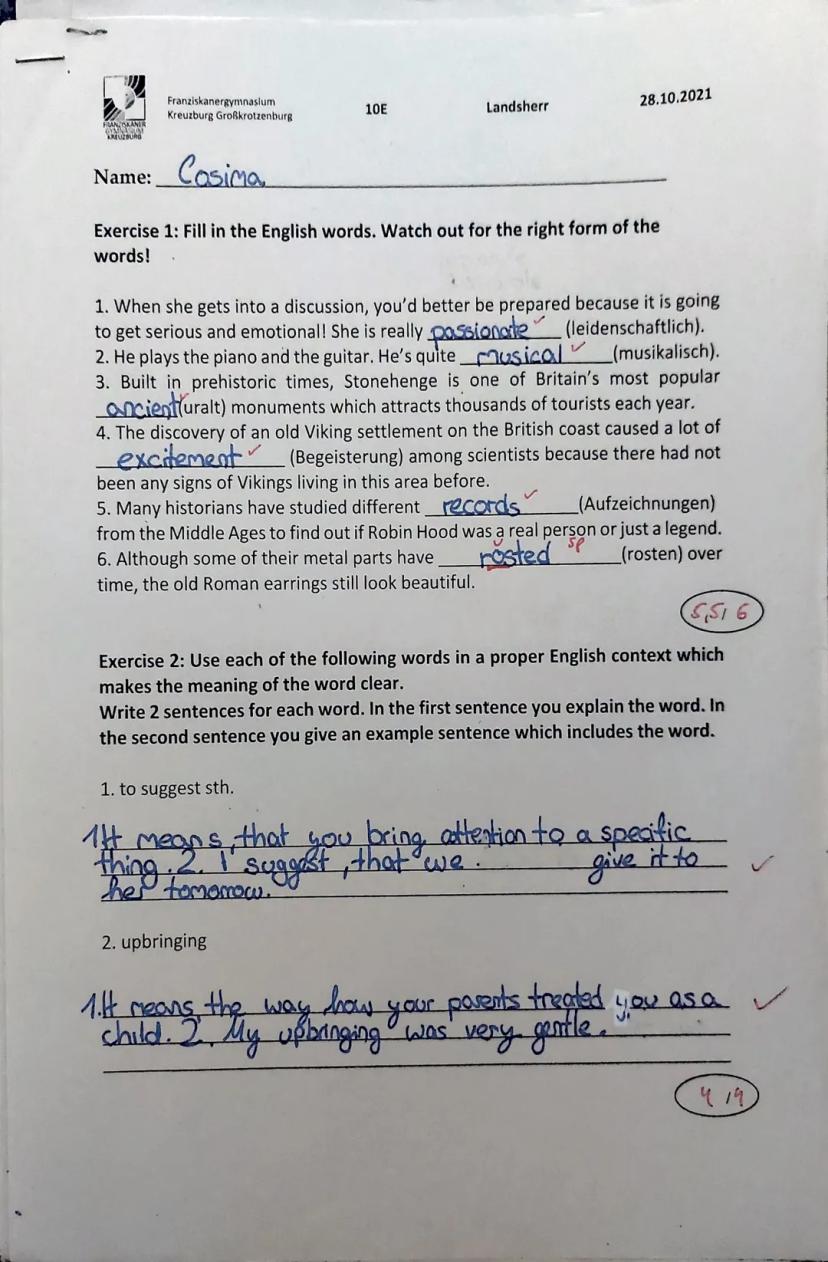 FRANZISKANER
GYMNASIUM
KREUZBURG
Franziskanergymnasium
Kreuzburg Großkrotzenburg
10E
Landsherr
28.10.2021
Name: Cosima
Exercise 1: Fill in the English words. Watch out for the right form of the
words!
1. When she gets into a discussion, you'd better be prepared because it is going
to get serious and emotional! She is really passionate (leidenschaftlich).
2. He plays the piano and the guitar. He's quite musical (musikalisch).
3. Built in prehistoric times, Stonehenge is one of Britain's most popular
ancient (uralt) monuments which attracts thousands of tourists each year.
4. The discovery of an old Viking settlement on the British coast caused a lot of
excitement (Begeisterung) among scientists because there had not
been any signs of Vikings living in this area before.
5. Many historians have studied different records (Aufzeichnungen)
from the Middle Ages to find out if Robin Hood was a real person or just a legend.
u sp
6. Although some of their metal parts have rosted (rosten) over
time, the old Roman earrings still look beautiful.
5,5/6
Exercise 2: Use each of the following words in a proper English context which
makes the meaning of the word clear.
Write 2 sentences for each word. In the first sentence you explain the word. In
the second sentence you give an example sentence which includes the word.
1. to suggest sth.
1. It means, that you bring attention to a specific
thing. 2. I suggest, that we give it to
her tomorrow.
2. upbringing
1. It means the way how your parents treated you as a
child. 2. My upbringing was very gentle.
4/4